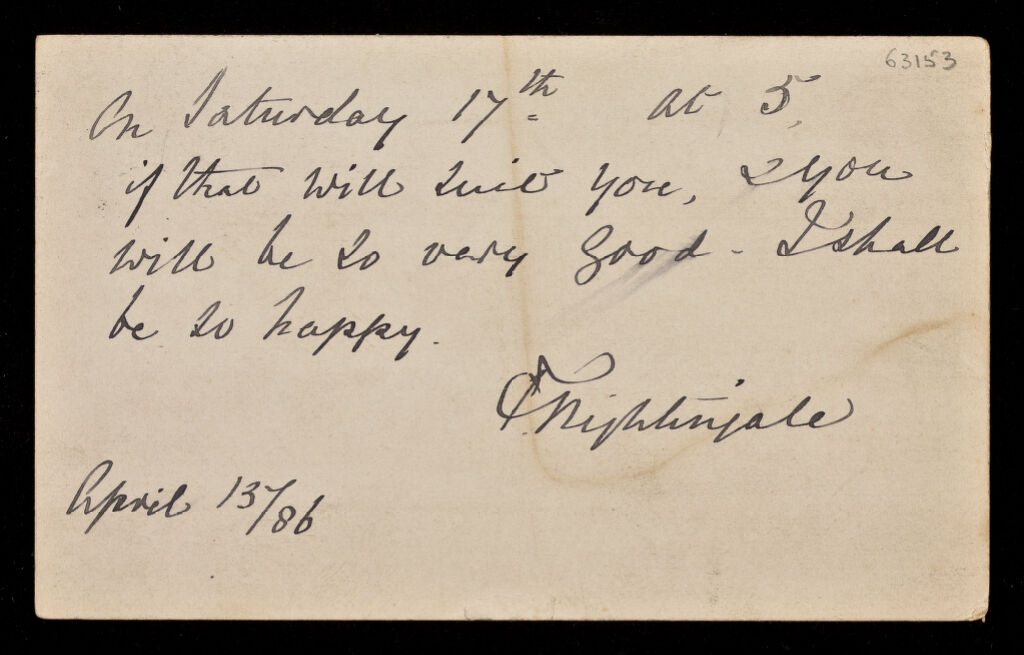 63153
On Saturday 17th at 5,
if that will suit you, & you
will be so very good - I shall
be so happy.
F. Nightingale
April 13/86